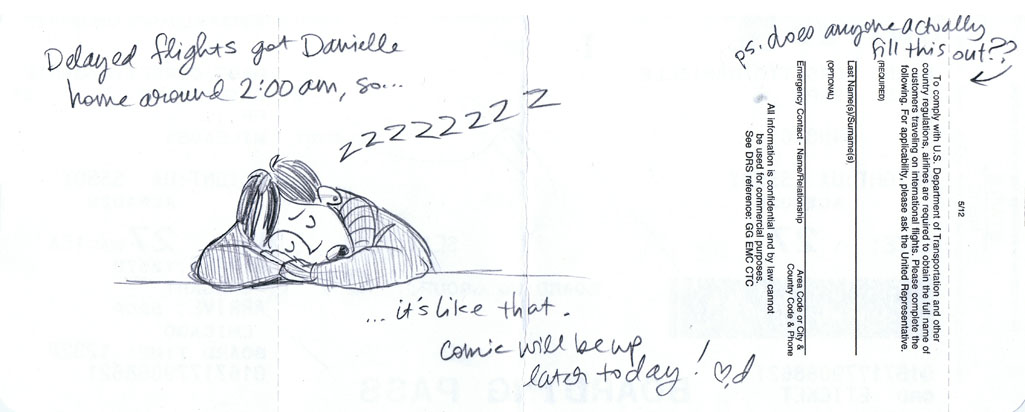 Delayed flights got Danielle
home around 2:00 am, so...
zzzzzzz
...it's like that.
Comic will be up
later today! ♡d
ps. does anyone actually
fill this out??
5/12
To comply with U.S. Department of Transportation and other
country regulations, airlines are required to obtain the full name of
customers traveling on international flights. Please complete the
following. For applicability, please ask the United Representative.
(REQUIRED)
Last Name(s)/Surname(s)
(OPTIONAL)
Emergency Contact - Name/Relationship
Area Code or City &
Country Code & Phone
All information is confidential and by law cannot
be used for commercial purposes.
See DRS reference: GG EMC CTC
BOARDING PASS